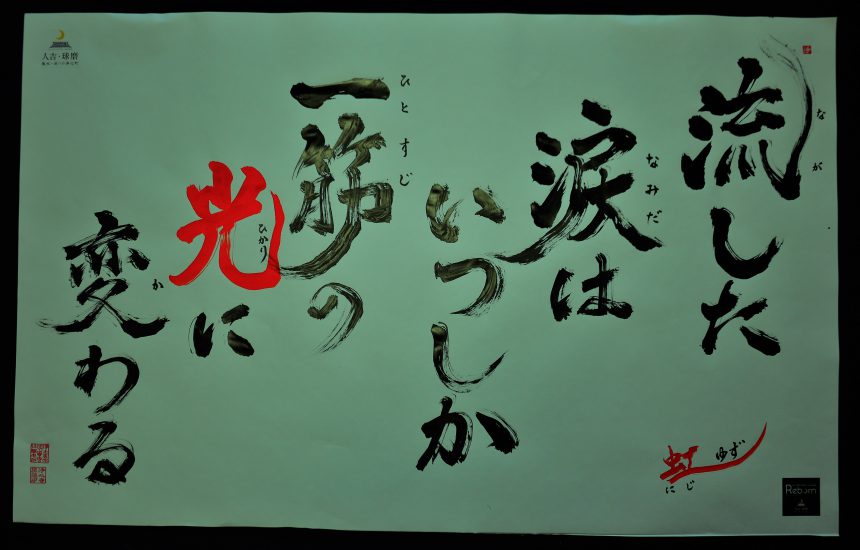 流した
なが
涙は
なみだ
いつしか
一筋の
ひとすじ
光に
ひかり
変わる
か
虹
にじ
ゆず
人吉・球磨
Reborn